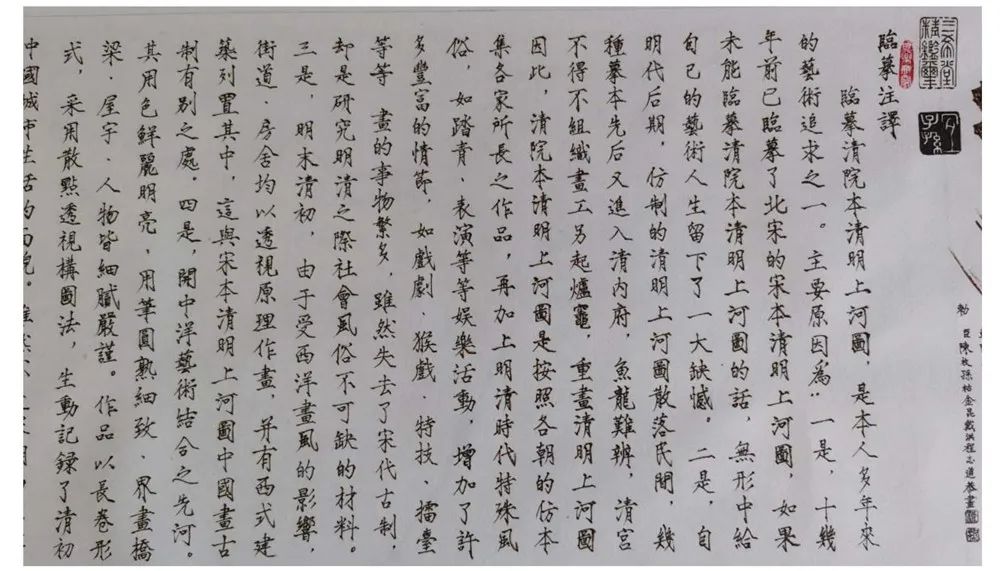 三希堂精鑑璽
宜子孫
勅
臣陳枚孫祜金昆戴洪程志道恭畫
臨摹注譯
臨摹清院本清明上河圖，是本人多年來
的藝術追求之一。主要原因為：一是，十幾
年前已臨摹了北宋的宋本清明上河圖，如果
未能臨摹清院本清明上河圖的話，無形中給
自己的藝術人生留下了一大缺憾。二是，自
明代后期，仿制的清明上河圖散落民間，幾
種摹本先后又進入清内府，魚龍難辨，清宮
不得不組織畫工另起爐竈，重畫清明上河圖
因此，清院本清明上河圖是按照各朝的仿本
集各家所長之作品，再加上明清時代特殊風
俗，如踏青、表演等等娛樂活動，增加了許
多豐富的情節，如戲劇、猴戲、特技、擂臺
等等 畫的事物繁多，雖然失去了宋代古制，
却是研究明清之際社會風俗不可缺的材料。
三是，明末清初，由于受西洋畫風的影響，
街道、房舍均以透視原理作畫，并有西式建
築列置其中，這與宋本清明上河圖中國畫古
制有别之處。四是，開中洋藝術結合之先河。
其用色鮮麗明亮，用筆圓熟細致、界畫橋
梁、屋宇、人物皆細膩嚴謹。作品以長卷形
式，采用散點透視構圖法，生動記録了清初
中國城市生活的面貌。雖然